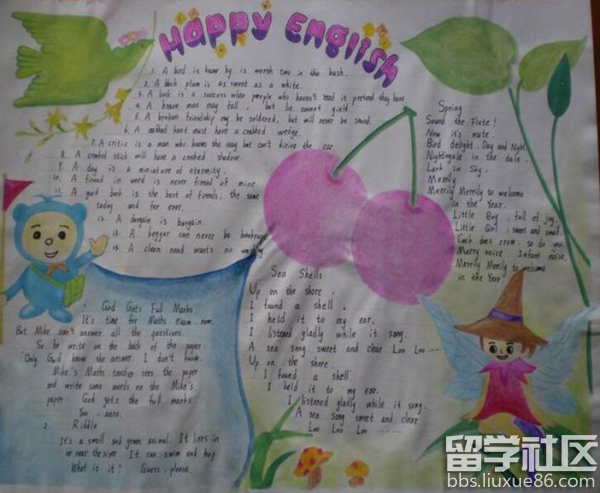 Happy English
1. A bird is know by is worth two in the bush.
2. A black plan is as sweet as a white.
3. A book is a success when people who haven't read it pretend they have
4. A brave man may fall, but he cannot yield.
5. A broken friendship may be soldered, but will never be sound.
6. A crabbed knot must have a crabbed wedge.
7. A critic is a man who knows the way but can't drive the car.
8. A crooked stick will have a crooked shadow.
9. A day is a miniature of eternity.
10. A friend in word is never friend of mine.
11. A good book is the best of friends, the same
today and for ever.
12. A bargain is bargain.
13. A beggar can never be bankrupt
14. A clean hand wants no washing
Spring
Sound the Flute!
Now it's mute.
Bird delight. Day and Night.
Nightingale in the dale.
Lark in Sky.
Merrily
Merrily Merrily to welcome
in the Year.
Little Boy, full of joy.
Little Girl, sweet and small
Cock does crow. so do you.
Merry voice. Infant noise.
Merrily Merrily to welcome
in the Year
Sea Shells
Up on the shore.
I found a shell.
I held it to my ear.
I listened gladly while it sang.
A sea song sweet and clear Loo Loo
Up on the shore
I found a shell.
I held it to my ear.
I listened gladly while it sang.
A sea song sweet and clear
Loo Loo Loo
1. God Gets Full Marks
It's time for Maths exam now.
But Mike can't answer all the questions.
So he write on the back of the paper
"Only God know the answer. I don't know.
Mike's Maths teacher sees the paper
and write some words on the Mike's
paper: God gets the full marks
You: zero.
2. Riddle
It's a small and green animal. It lives in
or near the river. It can swim and hop
What is it? Guess, please.
留学社区
bbs.liuxue86.com